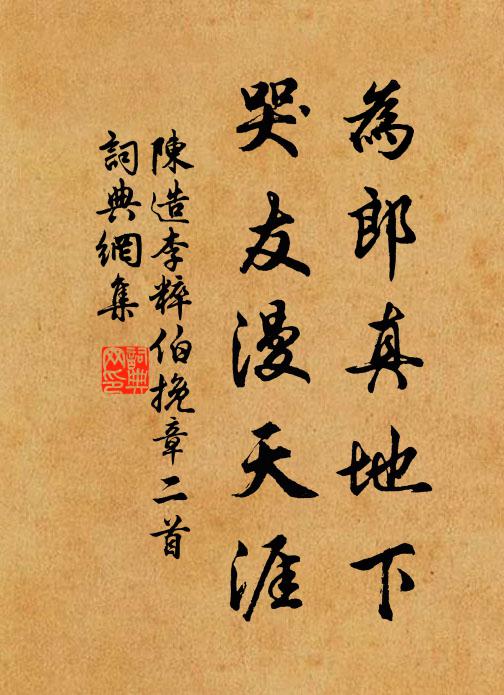 為郎真地下
哭友漫天涯
陳造李粹伯挽章二首
詞典網集
詞典
网印